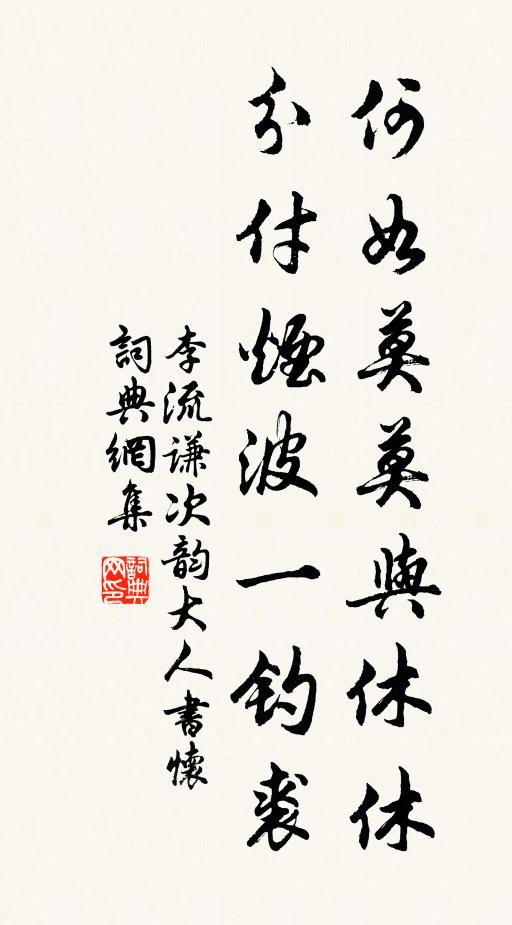 何如莫莫與休休
分付煙波一釣裘
李流謙次韵大人書懷
詞典網集
詞典网印